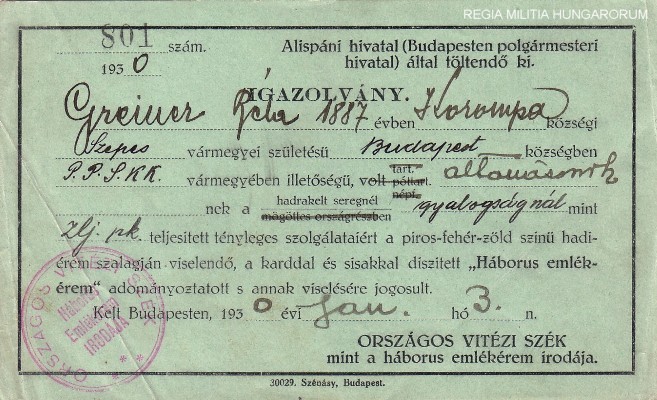 REGIA MILITIA HUNGARORUM
801 szám.
1930
Alispáni hivatal (Budapesten polgármesteri
hivatal) által töltendő ki.
IGAZOLVÁNY.
Greiner Béla 1887 évben Korompa községi
Szepes vármegyei születésü Budapest községben
P.P.S.KK. vármegyében illetőségü, volt tart. póttart. népf. állomásonk
nek a hadrakelt seregnél mögöttes országrészben gyalogságnál mint
zlj. pk. teljesitett tényleges szolgálataiért a piros-fehér-zöld szinü hadi-
érem szalagján viselendő, a karddal és sisakkal diszitett „Háborus emlék-
érem" adományoztatott s annak viselésére jogosult.
Kelt Budapesten, 1930 évi Jan. hó 3. n.
ORSZÁGOS VITÉZI SZÉK
Háborus
Emlékérem
IRODÁJA
ORSZÁGOS VITÉZI SZÉK
mint a háborus emlékérem irodája.
30029. Szénásy, Budapest.